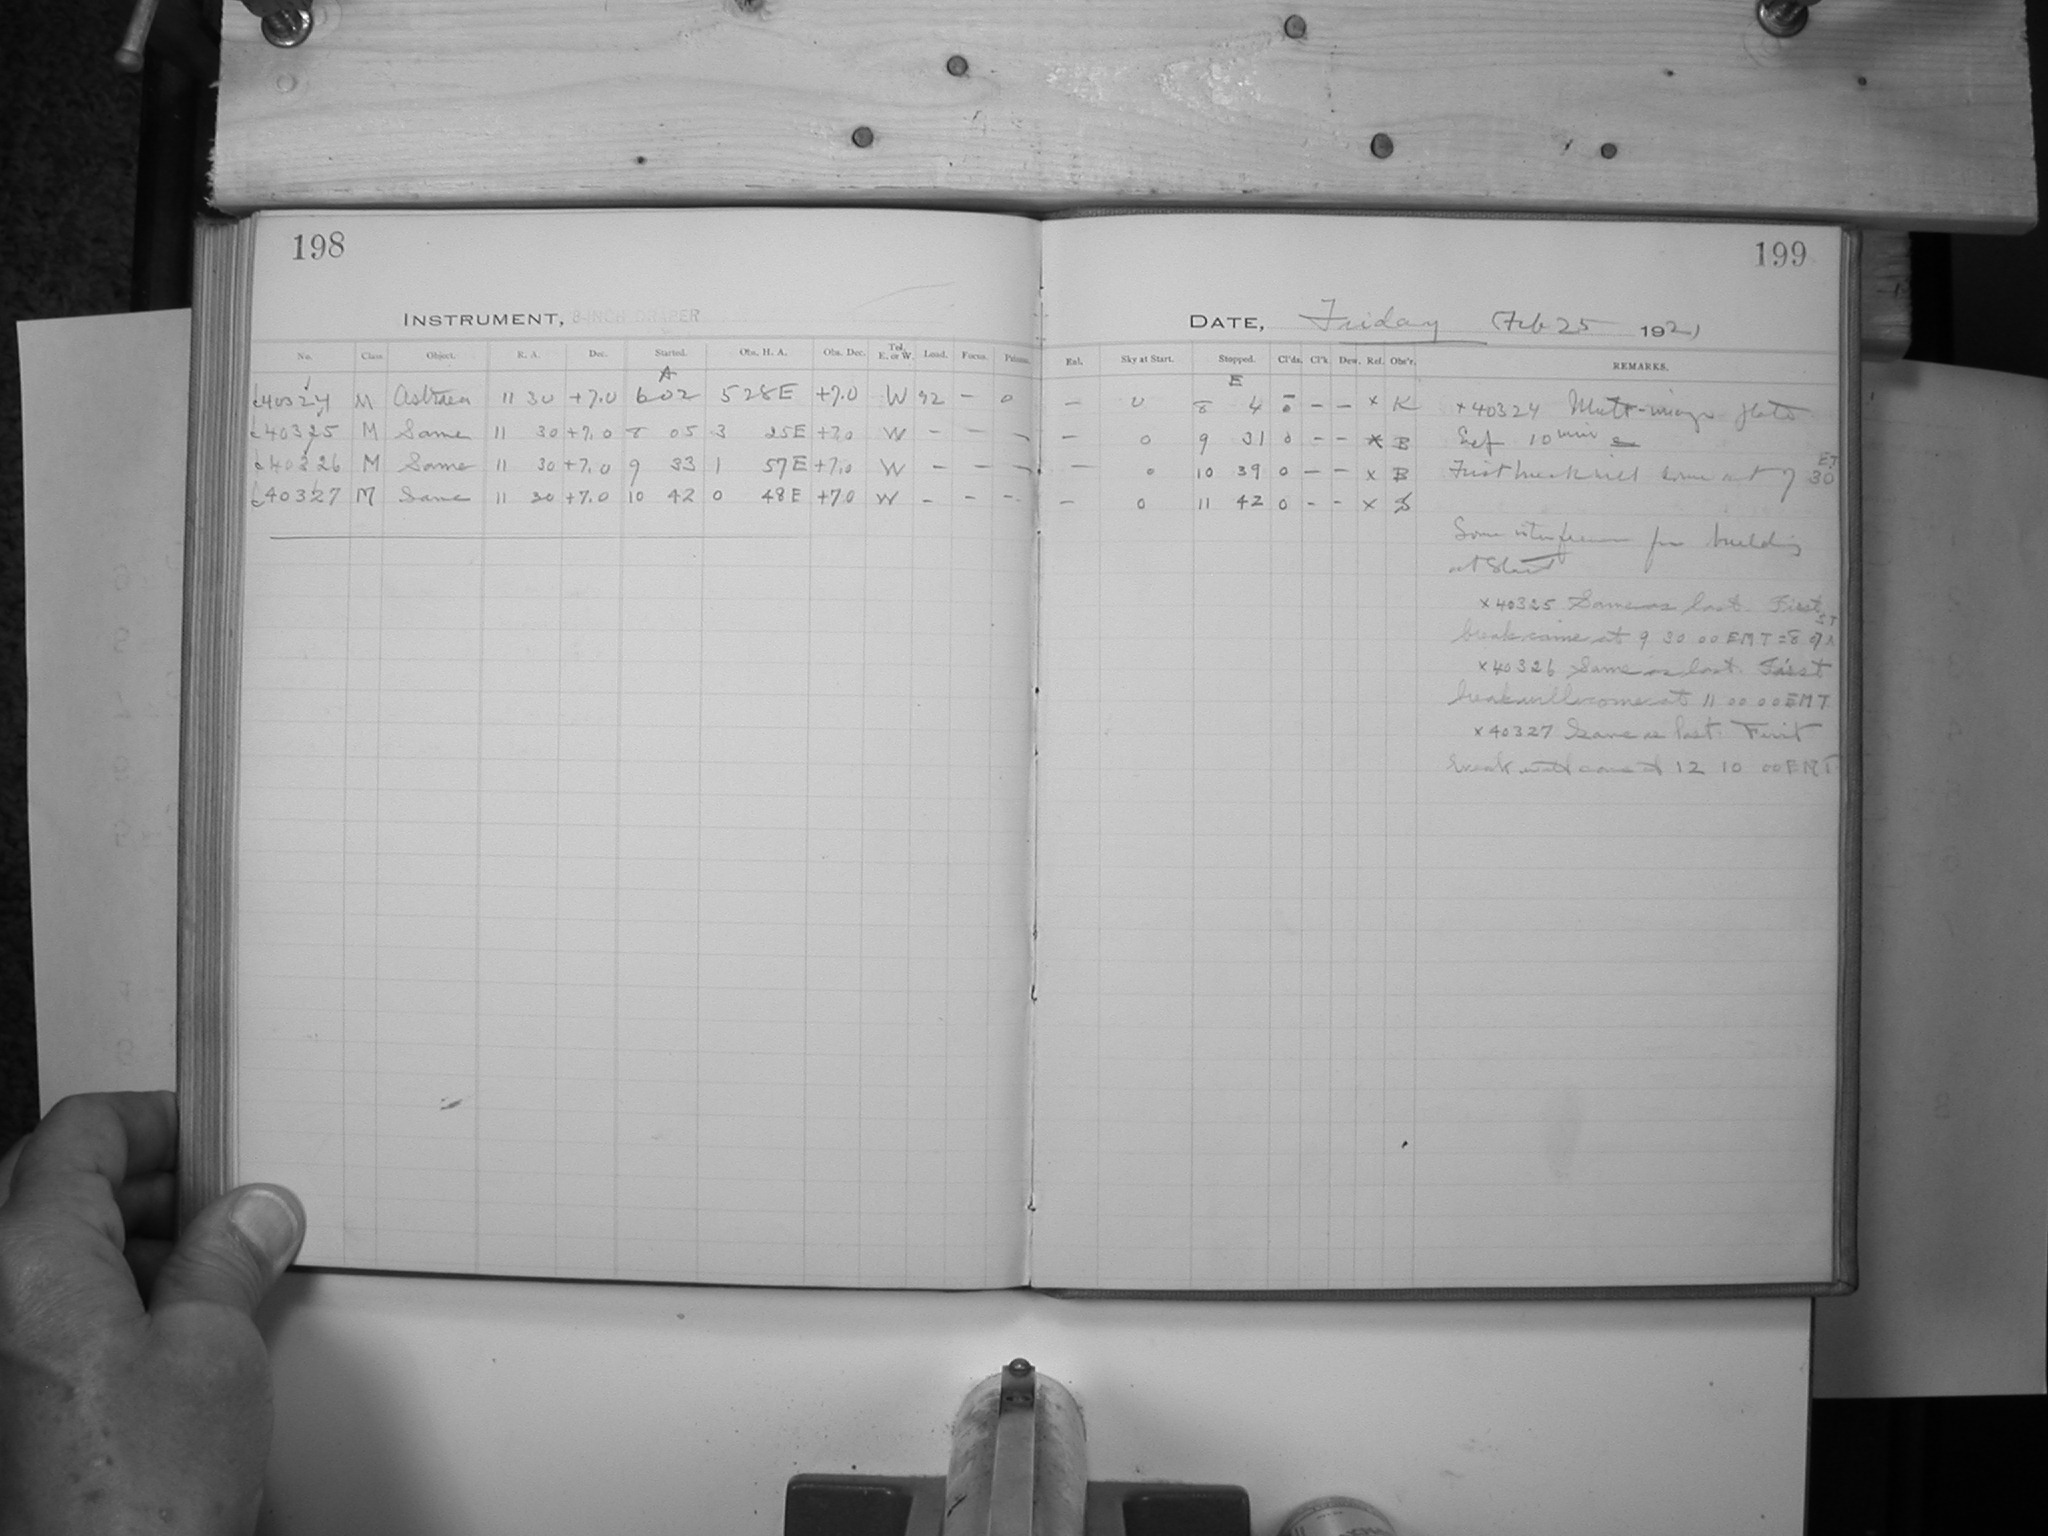 198
INSTRUMENT, 8-INCH DRAPER
No. Class Object. R. A. Dec. Started. Obs. H. A. Obs. Dec. Tel. E. or W. Load. Focus.
A
c40324 M Astraea 11 30 +7.0 6 02 5 28E +7.0 W 92 - 0
c40325 M Same 11 30 +7.0 8 05 3 25E +7.0 W - - -
c40326 M Same 11 30 +7.0 9 33 1 57E +7.0 W - - -
c40327 M Same 11 30 +7.0 10 42 0 48E +7.0 W - - -
199
DATE, Friday Feb 25 1921
Sky at Start. Stopped. Cl'ds. Cl'k Dew. Rel. Obs'r. REMARKS.
E
- 0 8 4 0 - - x K x40324 Mult-image plate
- 0 9 31 0 - - x B Exp 10 min
- 0 10 39 0 - - x B First break will come at 7 30 ET
- 0 11 42 0 - - x
Some interference from building
at Start
x40325 Same as last. First
break came at 9 30 00 EMT = 8
x40326 Same as last. First
break will come at 11 00 00 EMT
x40327 Same as last. First
break will come at 12 10 00 EMT